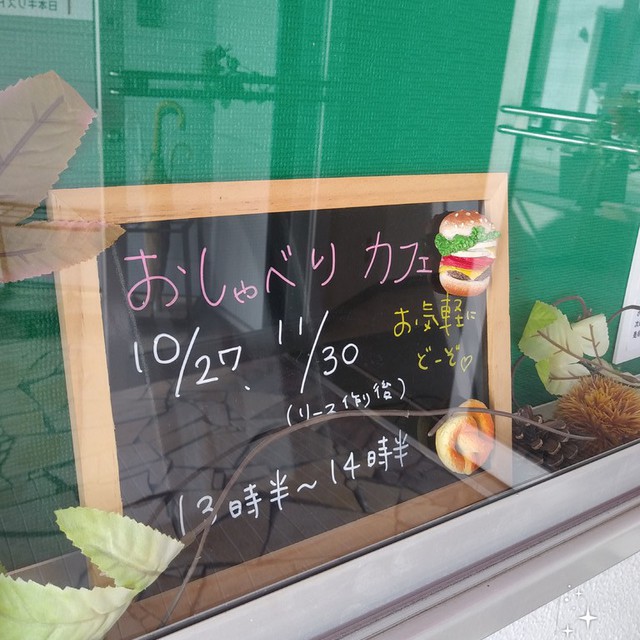 おしゃべり カフェ
お気軽に
どーぞ♡
10/27、11/30
(リース作り後)
13時半～14時半